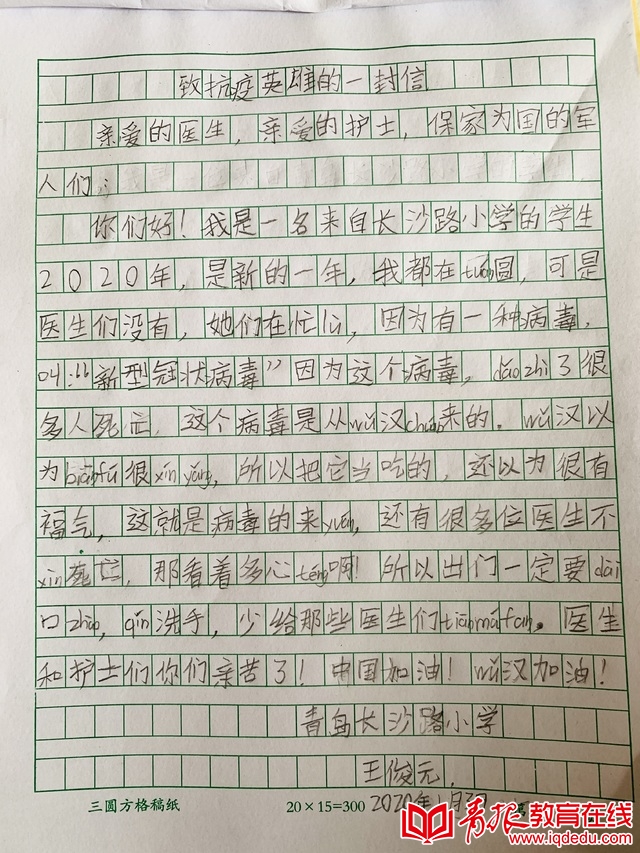 致抗疫英雄的一封信
亲爱的医生，亲爱的护士，保家为国的军
人们：
你们好！我是一名来自长沙路小学的学生
2020年，是新的一年，我都在tuán圆，可是
医生们没有，她们在忙lù，因为有一种病毒，
叫：“新型冠状病毒”因为这个病毒，dǎozhì了很
多人死亡，这个病毒是从wǔ汉chuán来的．wǔ汉以
为biānfú很xīn yǎng，所以把它当吃的，还以为很有
福气，这就是病毒的来yuán，还有很多位医生不
xìn死亡，那看着多心téng啊！所以出门一定要dài
口zhào，qín洗手，少给那些医生们tiānmáfan。医生
和护士们你们亲苦了！中国加油！wǔ汉加油！
青岛长沙路小学
王俊元
三圆方格稿纸 20×15=300 2020年
青报教育在线
www.iqdedu.com